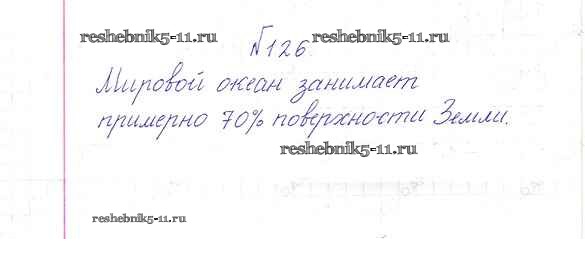 reshebnik5-11.ru
reshebnik5-11.ru
№126.
Мировой океан занимает
примерно 70% поверхности Земли.
reshebnik5-11.ru
reshebnik5-11.ru